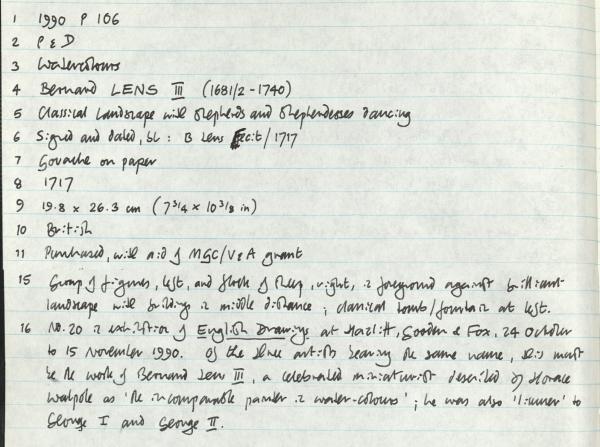 1 1990 P 106
2 P & D
3 Watercolours
4 Bernard LENS III (1681/2-1740)
5 Classical Landscape with Shepherds and Shepherdesses dancing
6 Signed and dated, bl: B Lens Fecit/1717
7 Gouache on paper
8 1717
9 19.8 x 26.3 cm (7 3/4 x 10 3/8 in)
10 British
11 Purchased, with aid of MGC/V&A grant
15 Group of figures, left, and flock of sheep, right, in foreground against brilliant
landscape with buildings in middle distance; classical tomb/fountain at left.
16 No. 20 in exhibition of English Drawings at Hazlitt, Gooden & Fox, 24 October
to 15 November 1990. Of the three artists bearing the same name, this must
be the work of Bernard Lens III, a celebrated miniaturist described by Horace
Walpole as 'the incomparable painter in water-colours'; he was also 'limner' to
George I and George II.